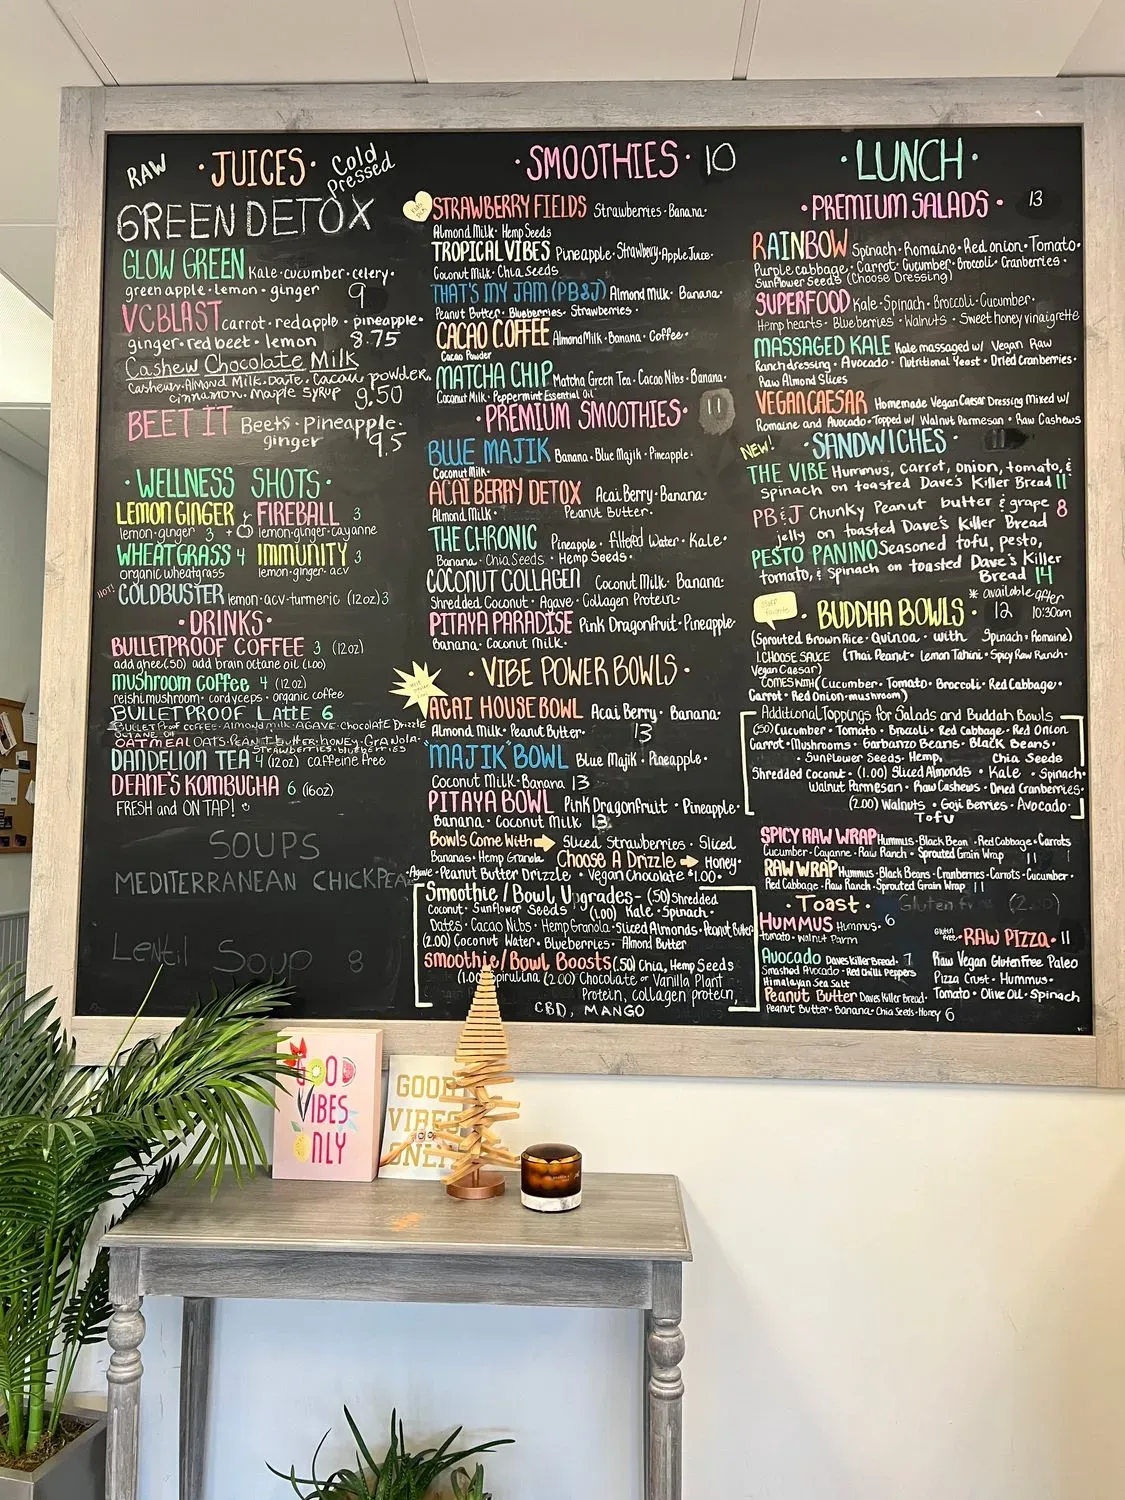 RAW · JUICES · Cold Pressed
GREEN DETOX
GLOW GREEN Kale · cucumber · celery ·
green apple · lemon · ginger 9
VC BLAST carrot · red apple · pineapple ·
ginger · red beet · lemon 8.75
Cashew Chocolate Milk
Cashews · Almond Milk · Date · Cacau powder,
cinnamon · Maple Syrup 9.50
BEET IT Beets · Pineapple ·
ginger 9.5
· WELLNESS SHOTS ·
LEMON GINGER FIREBALL 3
lemon · ginger 3 lemon · ginger · cayanne
WHEATGRASS 4 IMMUNITY 3
organic wheatgrass lemon · ginger · acv
HOT! COLDBUSTER lemon · acv · turmeric (12oz) 3
· DRINKS ·
BULLETPROOF COFFEE 3 (12oz)
add ghee (.50) add brain octane oil (1.00)
mushroom coffee 4 (12oz)
reishi mushroom · cordyceps · organic coffee
BULLETPROOF LATTE 6
BULLETPROOF COFFEE · Almond milk · AGAVE · Chocolate Drizzle
OCTANE OIL
OATMEAL OATS · PEANUT butter · honey · GRANOLA ·
STRAWBERRIES · blueberries
DANDELION TEA 4 (12oz) caffeine free
DEANE'S KOMBUCHA 6 (16oz)
FRESH and ON TAP!
SOUPS
MEDITERRANEAN CHICKPEA
Lentil Soup 8
· SMOOTHIES · 10
STRAWBERRY FIELDS Strawberries · Banana ·
Almond Milk · Hemp Seeds
TROPICAL VIBES Pineapple · Strawberry · Apple Juice ·
Coconut Milk · Chia Seeds
THAT'S MY JAM (PB&J) Almond Milk · Banana ·
Peanut Butter · Blueberries · Strawberries ·
CACAO COFFEE Almond Milk · Banana · Coffee ·
Cacao Powder
MATCHA CHIP Matcha Green Tea · Cacao Nibs · Banana ·
Coconut Milk · Peppermint Essential Oil
· PREMIUM SMOOTHIES · 11
BLUE MAJIK Banana · Blue Majik · Pineapple ·
Coconut Milk ·
ACAI BERRY DETOX Acai Berry · Banana ·
Almond Milk · Peanut Butter ·
THE CHRONIC Pineapple · filtered Water · Kale ·
Banana · Chia Seeds · Hemp Seeds ·
COCONUT COLLAGEN Coconut Milk · Banana ·
Shredded Coconut · Agave · Collagen Protein ·
PITAYA PARADISE Pink Dragonfruit · Pineapple ·
Banana · Coconut Milk ·
· VIBE POWER BOWLS ·
ACAI HOUSE BOWL Acai Berry · Banana ·
Almond Milk · Peanut Butter · 13
"MAJIK" BOWL Blue Majik · Pineapple ·
Coconut Milk · Banana 13
PITAYA BOWL Pink Dragonfruit · Pineapple ·
Banana · Coconut Milk 13
Bowls Come With Sliced Strawberries · Sliced
Bananas · Hemp Granola Choose A Drizzle Honey ·
Agave · Peanut Butter Drizzle · Vegan Chocolate * 1.00 ·
Smoothie / Bowl Upgrades - (.50) Shredded
Coconut · Sunflower Seeds · (1.00) Kale · Spinach ·
Dates · Cacao Nibs · Hemp Granola · Sliced Almonds · Peanut Butter
(2.00) Coconut Water · Blueberries · Almond Butter
smoothie/Bowl Boosts (.50) Chia, Hemp Seeds
(1.00) Spirulina (2.00) Chocolate or Vanilla Plant
Protein, collagen protein,
CBD, MANGO
· LUNCH ·
· PREMIUM SALADS · 13
RAINBOW Spinach · Romaine · Red onion · Tomato ·
Purple cabbage · Carrot · Cucumber · Broccoli · Cranberries ·
Sunflower Seeds (Choose Dressing)
SUPERFOOD Kale · Spinach · Broccoli · Cucumber ·
Hemp hearts · Blueberries · Walnuts · Sweet honey vinaigrette
MASSAGED KALE Kale massaged w/ Vegan Raw
Ranch dressing · Avocado · Nutritional Yeast · Dried Cranberries ·
Raw Almond Slices
VEGAN CAESAR Homemade Vegan Caesar Dressing Mixed w/
Romaine and Avocado · Topped w/ Walnut Parmesan · Raw Cashews
NEW! · SANDWICHES ·
THE VIBE Hummus, Carrot, onion, tomato, &
spinach on toasted Dave's Killer Bread 11
PB&J Chunky Peanut butter & grape 8
jelly on toasted Dave's Killer Bread
PESTO PANINO Seasoned tofu, pesto,
tomato, & spinach on toasted Dave's Killer
Bread 14
* available after
10:30am
· BUDDHA BOWLS · 12
(Sprouted Brown Rice · Quinoa · with Spinach · Romaine)
1. CHOOSE SAUCE (Thai Peanut · Lemon Tahini · Spicy Raw Ranch ·
Vegan Caesar)
COMES WITH (Cucumber · Tomato · Broccoli · Red Cabbage ·
Carrot · Red Onion · mushroom)
Additional Toppings for Salads and Buddah Bowls
(.50) Cucumber · Tomato · Broccoli · Red Cabbage · Red Onion
Carrot · Mushrooms · Garbanzo Beans · Black Beans ·
· Sunflower Seeds · Hemp, Chia Seeds
Shredded Coconut · (1.00) Sliced Almonds · Kale · Spinach ·
Walnut Parmesan · Raw Cashews · Dried Cranberries ·
(2.00) Walnuts · Goji Berries · Avocado ·
Tofu
SPICY RAW WRAP Hummus · Black Bean · Red Cabbage · Carrots
Cucumber · Cayanne · Raw Ranch · Sprouted Grain Wrap 11
RAW WRAP Hummus · Black Beans · Cranberries · Carrots · Cucumber ·
Red Cabbage · Raw Ranch · Sprouted Grain Wrap 11
· Toast · Gluten free (2.00)
HUMMUS Hummus · 6
Tomato · Walnut Parm
Avocado Daves Killer Bread · 7
Smashed Avocado · Red Chili Peppers
Himalayan Sea Salt
Peanut Butter Daves Killer Bread ·
Peanut Butter · Banana · Chia Seeds · Honey 6
Gluten free · RAW PIZZA · 11
Raw Vegan Gluten Free Paleo
Pizza Crust · Hummus ·
Tomato · Olive Oil · Spinach
GOOD
VIBES
ONLY
GOOD
VIBES
ONLY